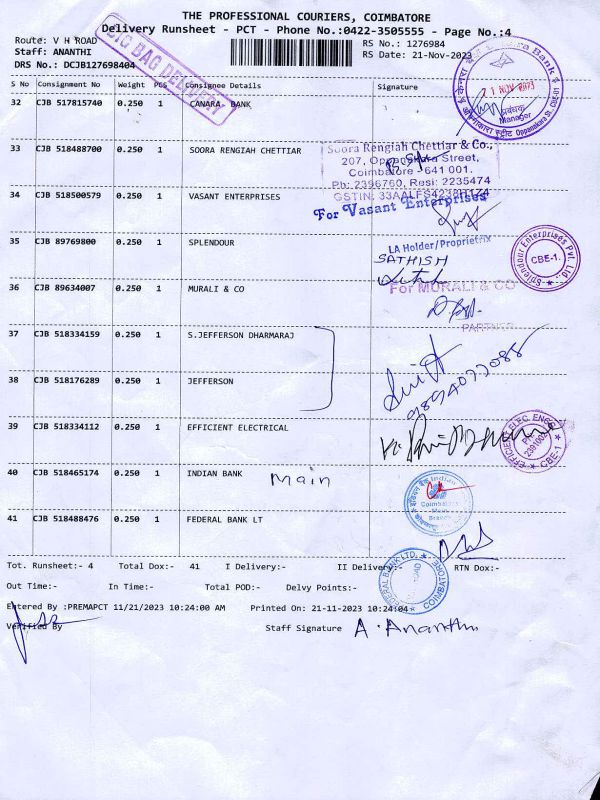 THE PROFESSIONAL COURIERS, COIMBATORE
Delivery Runsheet - PCT - Phone No.:0422-3505555 - Page No.:4
Route: V H ROAD
Staff: ANANTHI
DRS No.: DCJB127698404
BIG BAG DELIVERY
RS No.: 1276984
RS Date: 21-Nov-2023
S No Consignment No Weight PCS Consignee Details Signature
32 CJB 517815740 0.250 1 CANARA BANK
21 NOV 2023
प्रबंधक
Manager
Oppanakara St. CBE-01
33 CJB 518488700 0.250 1 SOORA RENGIAH CHETTIAR
Soora Rengiah Chettiar & Co.,
207, Oppanakara Street,
Coimbatore - 641 001.
Ph: 2396760, Resi: 2235474
34 CJB 518500579 0.250 1 VASANT ENTERPRISES
For Vasant Enterprises
35 CJB 89769800 0.250 1 SPLENDOUR
LA Holder/Proprietrix
SATHISH
Splendour Enterprises Pvt Ltd
CBE-1.
36 CJB 89634007 0.250 1 MURALI & CO
For MURALI & CO
PARTNER
37 CJB 518334159 0.250 1 S.JEFFERSON DHARMARAJ
38 CJB 518176289 0.250 1 JEFFERSON
9894077088
39 CJB 518334112 0.250 1 EFFICIENT ELECTRICAL
CBE-1
40 CJB 518465174 0.250 1 INDIAN BANK Main
41 CJB 518488476 0.250 1 FEDERAL BANK LT
FEDERAL BANK LTD.
COIMBATORE
Tot. Runsheet:- 4 Total Dox:- 41 I Delivery:- II Delivery:- RTN Dox:-
Out Time:- In Time:- Total POD:- Delvy Points:-
Entered By :PREMAPCT 11/21/2023 10:24:00 AM Printed On: 21-11-2023 10:24:04
Verified By Staff Signature A. Ananthi